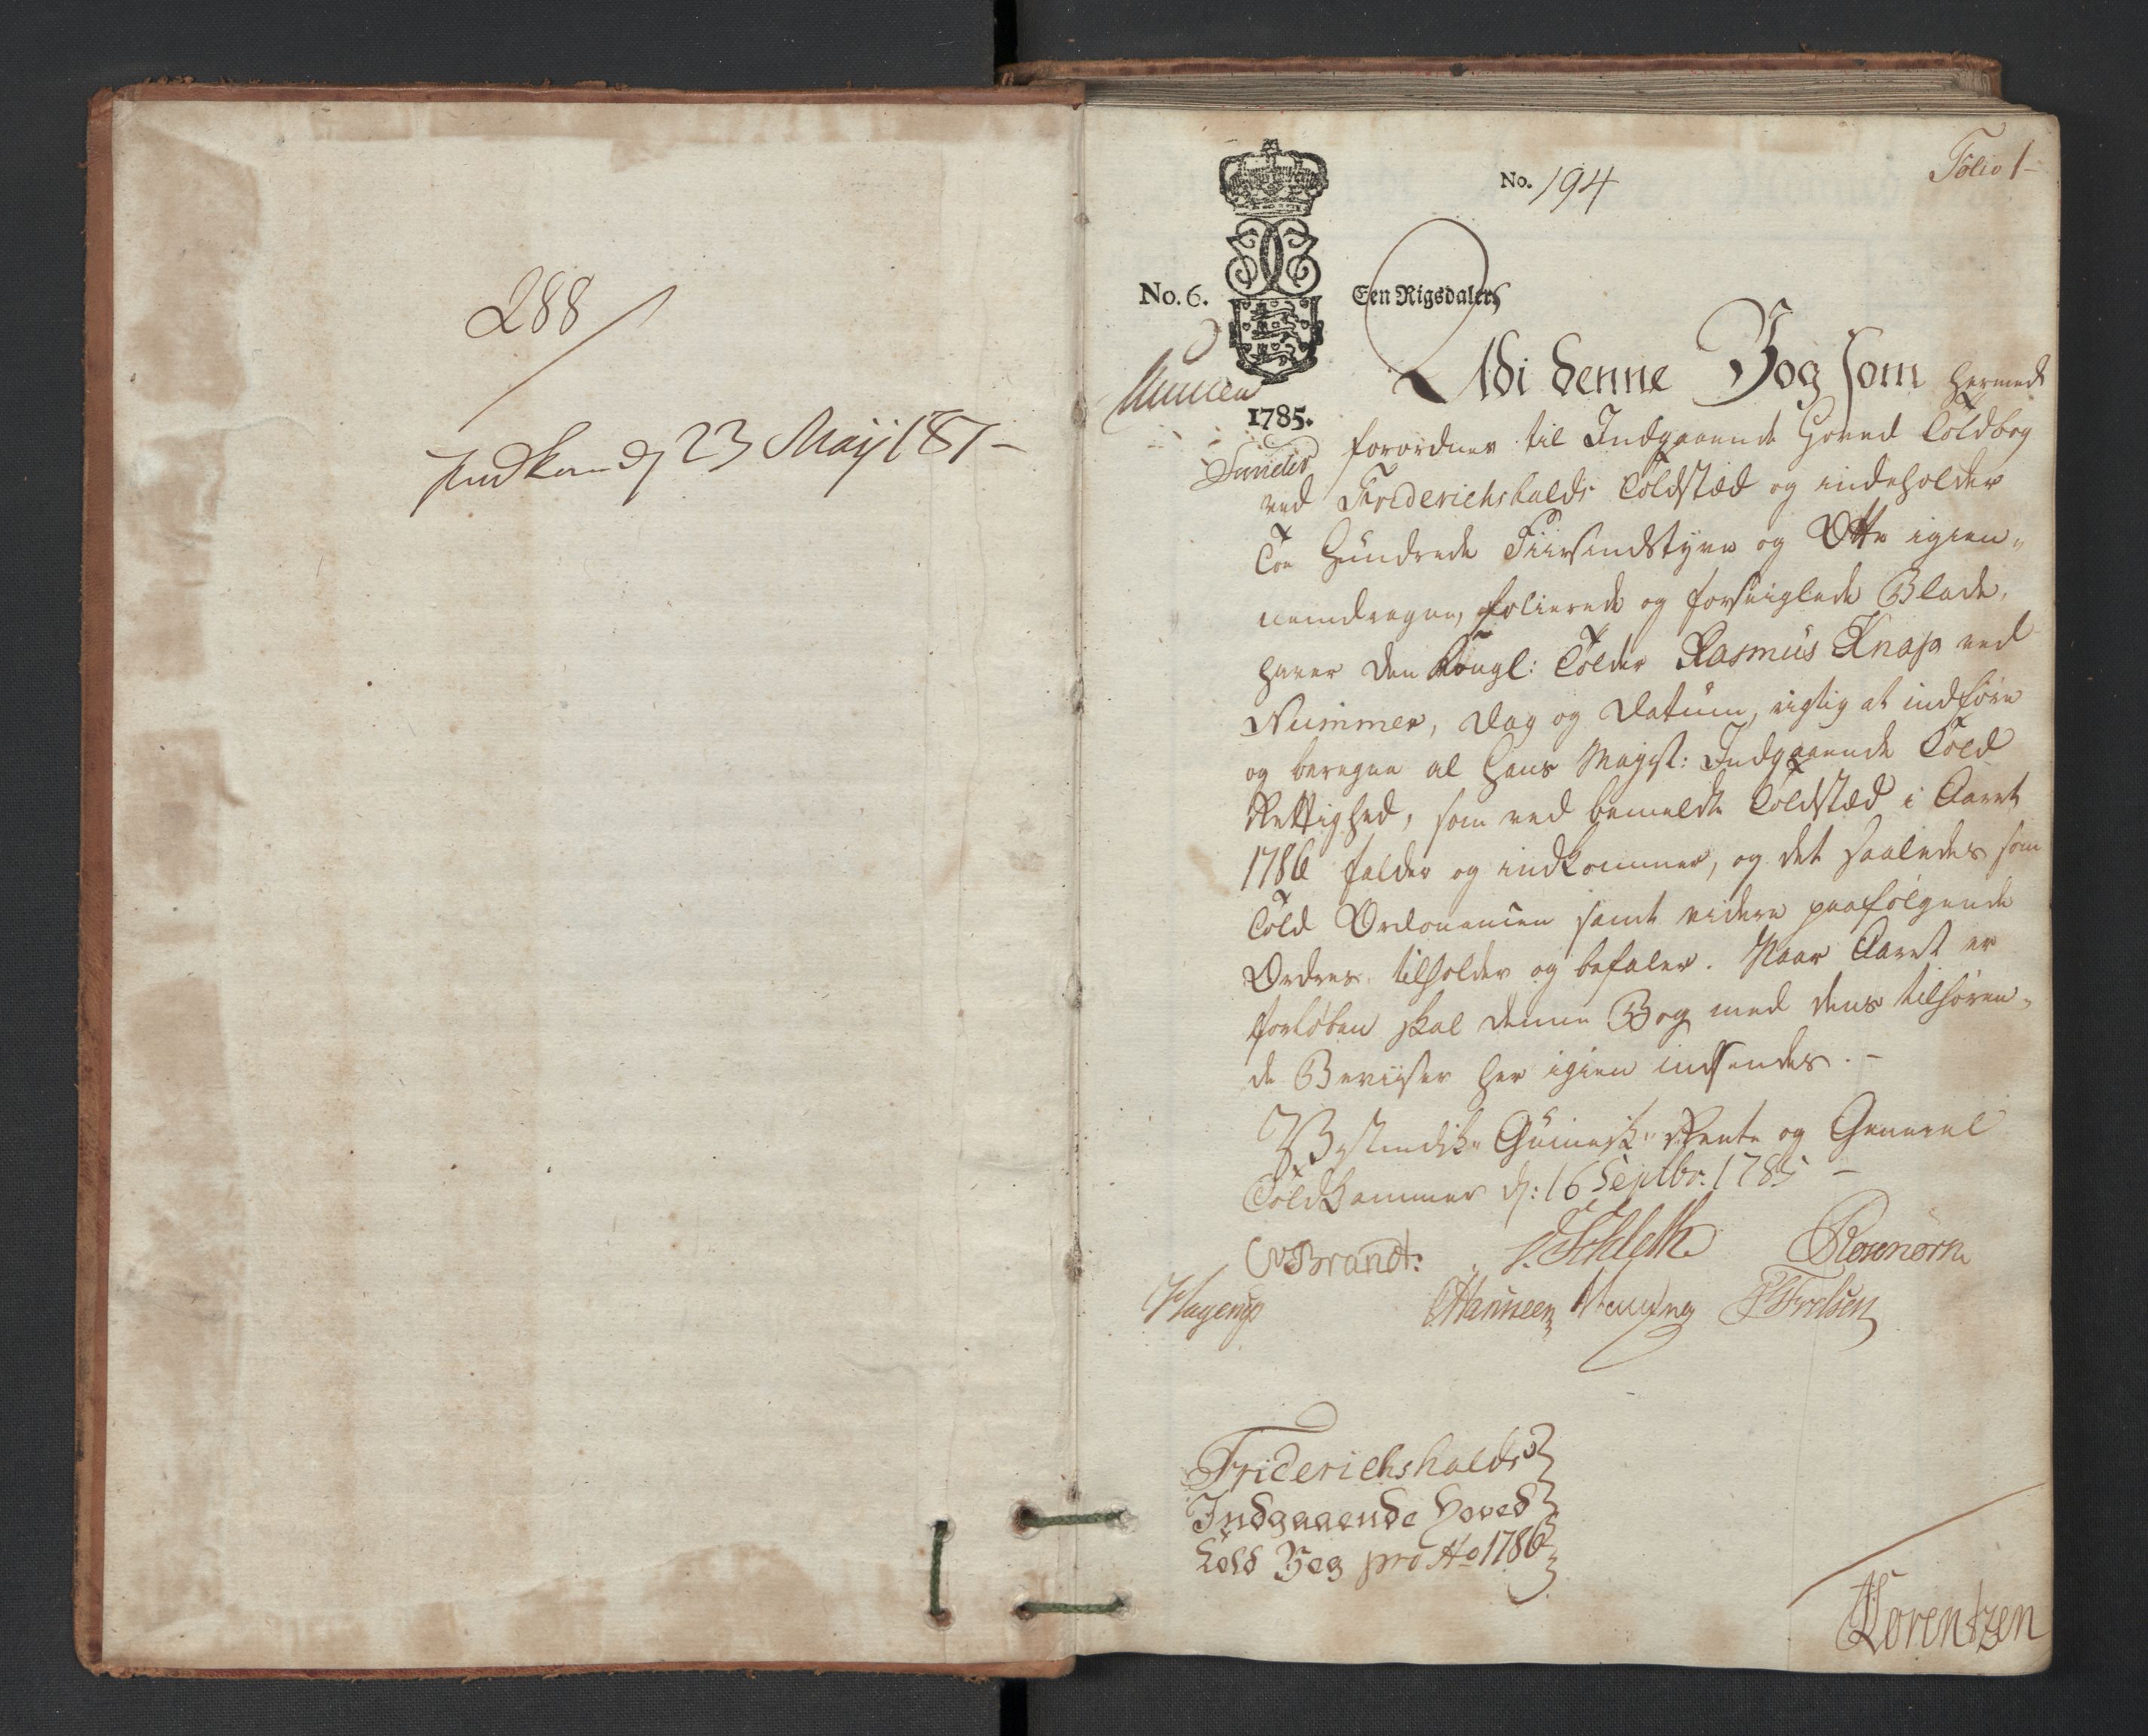 288
Indkom d 23 Maij 187
No. 194
Folio 1
No. 6.
Een Rigsdaler
1785.
Udi denne Bog som hermed
forordnes til Indgaaende Hoved Toldbog
ved Friderichshalds Toldstæd og indeholder
Toe Hundrede Fiirsindstyve og Otte igien-
nemdragne, folierede og forseiglede Blade,
haver den Kongl: Tolder Rasmus Knap ved
Nummer, Dag og Datum, rigtig at indføre
og beregne al Hans Mayst: Indgaaende Told
Rettighed, som ved bemeldte Toldstæd i Aaret
1786 falder og indkommer, og det saaledes som
Told Ordonancen samt videre paafølgende
Ordres tilholder og befaler. Naar Aaret er
forløben skal denne Bog med dens tilhøren-
de Beviiser her igien indsendes.
Vestindisk- Guineisk- Rente og General
Toldkammer d: 16 Septbr: 1785
Brandt.
Rosenørn
Hagerup
Hansen
Friderichshalds
Indgaaende Hoved
Told Bog pro Ao 1786
Lorentzen